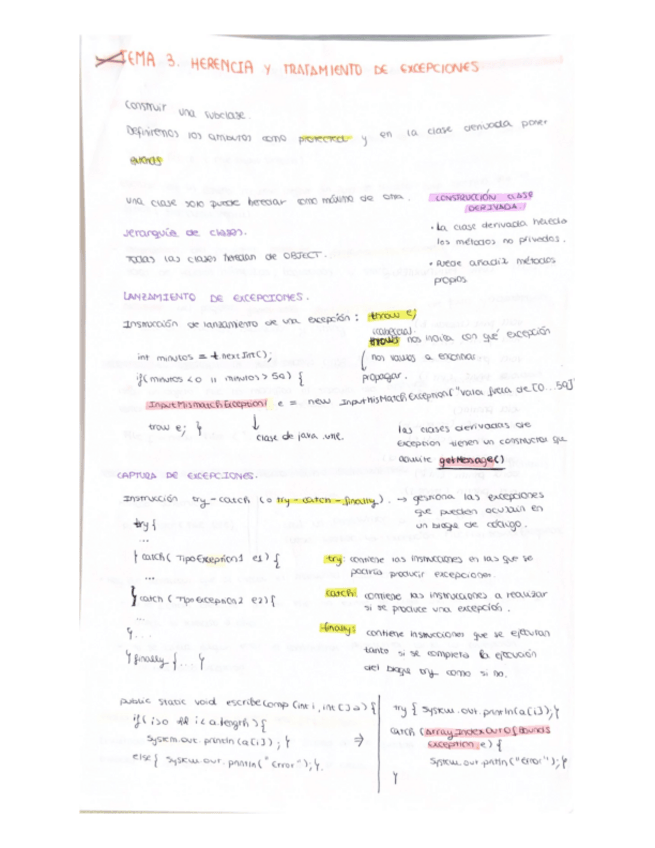 TEMA 3. HERENCIA Y TRATAMIENTO DE EXCEPCIONES
Construir una subclase.
Definiremos los atributos como protected y en la clase derivada poner
extends
Una clase solo puede heredar como máximo de otra.
Jerarquía de clases.
Todas las clases heredan de OBJECT.
CONSTRUCCIÓN CLASE
DERIVADA
· La clase derivada hereda
los métodos no privados.
· Puede añadir métodos
propios
LANZAMIENTO DE EXCEPCIONES.
Instrucción de lanzamiento de una excepción: throw e;
(cabecera)
throws nos indica con qué excepción
nos vamos a encontrar.
propagar.
int minutos = t.nextInt();
if(minutos <0 || minutos > 59) {
InputMismatchException e = new InputMisMatchException("valor fuera de [0...59]
trow e; }
clase de java.util.
Las clases derivadas de
exception tienen un constructor que
admite getMessage()
CAPTURA DE EXCEPCIONES.
Instrucción try-catch (o try-catch-finally). → gestiona las excepciones
que pueden ocurrir en
un bloque de código.
try {
...
} catch ( TipoException1 e1) {
...
} catch ( TipoException2 e2) {
} ...
} finally { ... }
try: contiene las instrucciones en las que se
podría producir excepciones.
catch: contiene las instrucciones a realizar
si se produce una excepción.
finally: contiene instrucciones que se ejecutan
tanto si se completa la ejecución
del bloque try como si no.
public static void escribeComp (int i, int [] a) {
if( i>0 && i < a.length) {
System.out.println (a[i]); }
else{ System.out.println("Error"); }.
⇒
try { System.out.println(a[i]); }
catch (ArrayIndexOutOfBounds
Exception e) {
System.out.println("Error"); }
}